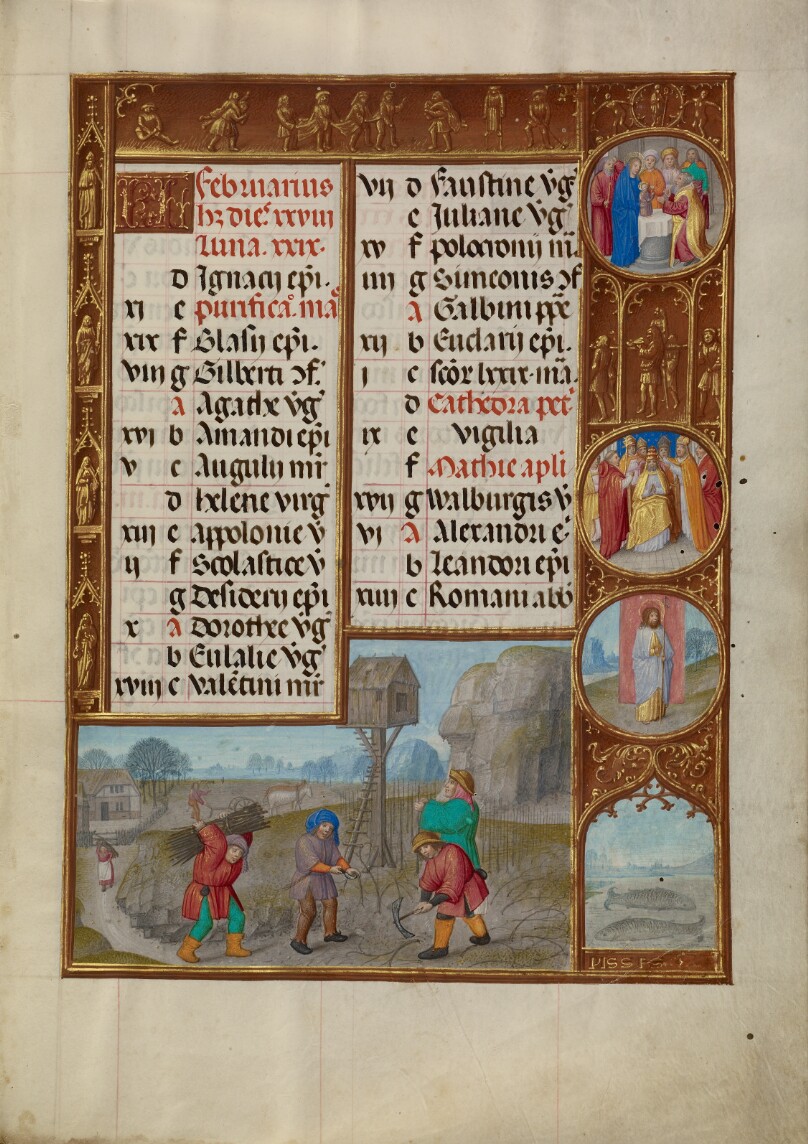 KL Februarius
hꝫ dieˢ xxviii
Luna. xxix.
d Ignacij ep̄i.
xi e purificā. ma
xix f Blasij ep̄i.
viii g Gilberti ↄf.
A Agathe v̊g
xvi b Amandi ep̄i
v c Auguli mr̄
d helene virg
xiii e Appolonie v
ii f Scolastice v
g Desiderij ep̄i
x A Dorothee v̊g
b Eulalie v̊g
xviii c valētini mr̄
vii d Faustine v̊g
e Juliane v̊g
xv f polocronij m.
iiii g Simeonis ↄf
A Galbini pp̄e
xii b Euclarij ep̄i.
i c scōr lxxix. mā.
d Cathedra pet
ix e vigilia
f Mathie apli
xvii g walburgis v̊
vi A Alexandri e
b Leandori ep̄i
xiiii c Romani abb̄
PISSES